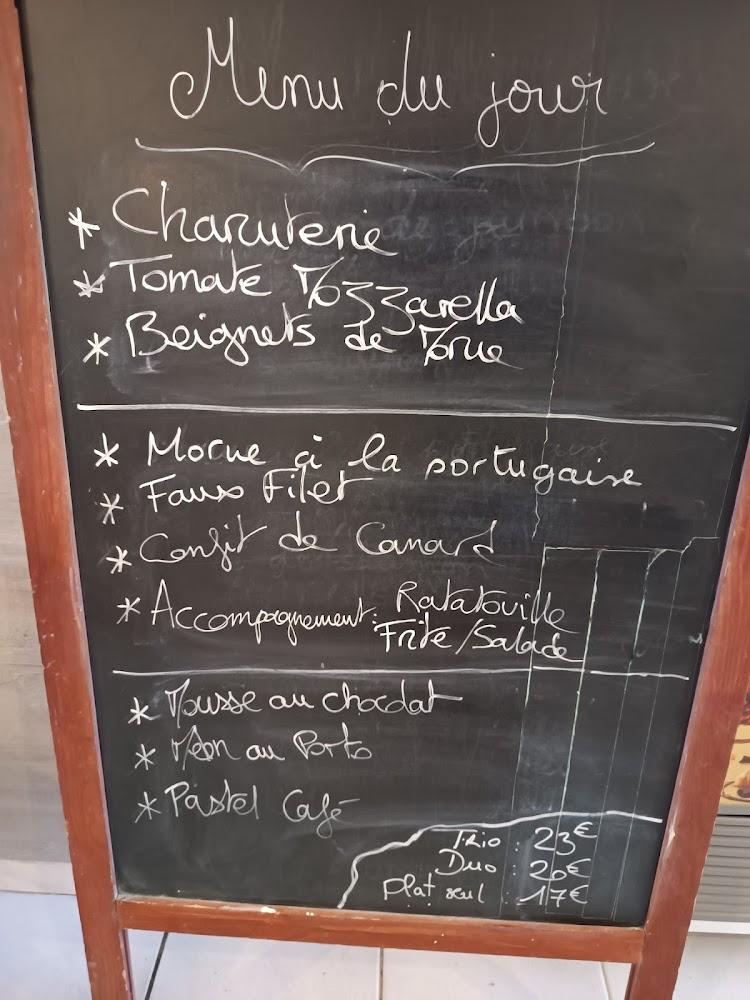 Menu du jour
* Charcuterie
* Tomate Mozzarella
* Beignets de Morue
* Morue à la portugaise
* Faux Filet
* Confit de Canard
* Accompagnement : Ratatouille
Frite/Salade
* Mousse au chocolat
* Melon au Porto
* Pastel Café
Trio : 23€
Duo : 20€
Plat seul : 17€